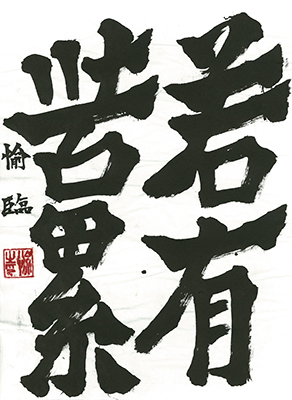 若有
苦累
愉臨